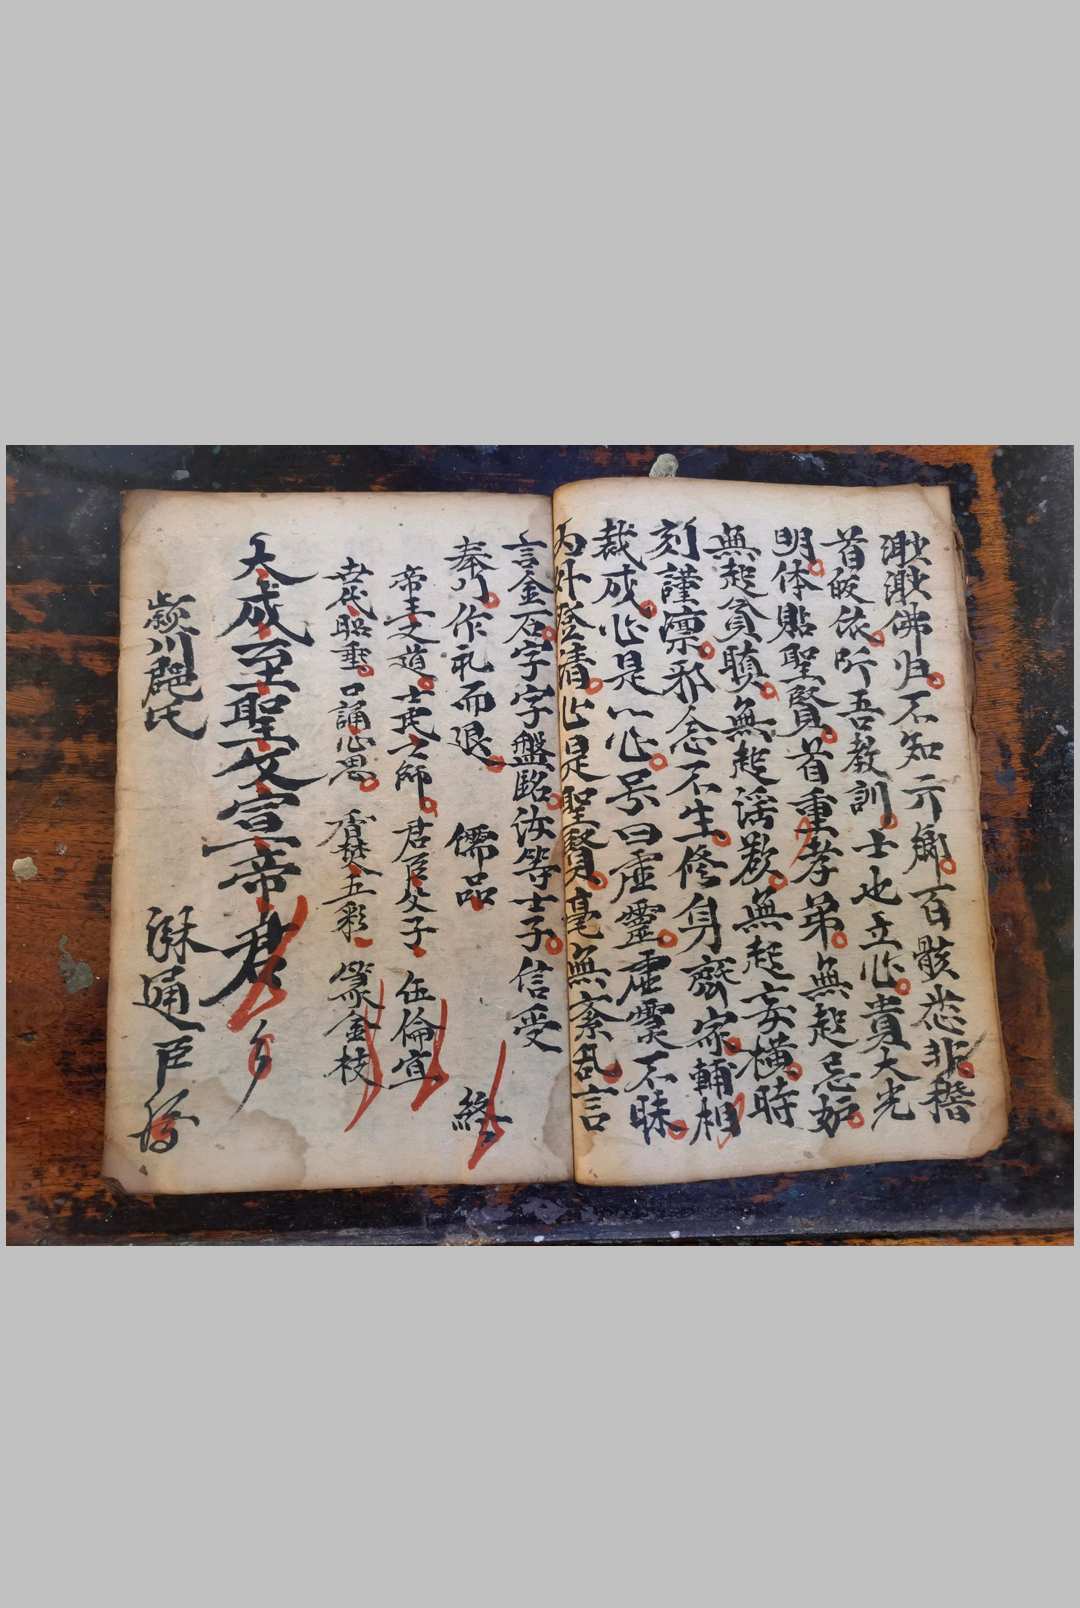 渺渺佛归不知亓鄉百骸悲非稽
首皈依听吾教訓士也立心貴大光
明体貼聖賢首重孝弟無起忌妒
無起貪瞋無起淫欺無起妄橫時
刻謹凛邪念不生修身齊家輔相
裁成心是心号曰虛靈虛靈不昧
内外澄清心是聖賢毫無紊乱言
言金石字字盤銘汝等士子信受
奉行作礼而退 儒品 終
帝王文道士民之師君臣父子伍倫宜
世代昭垂口誦心思香焚五彩篆金枝
大成至聖文宣帝君
川氏
通